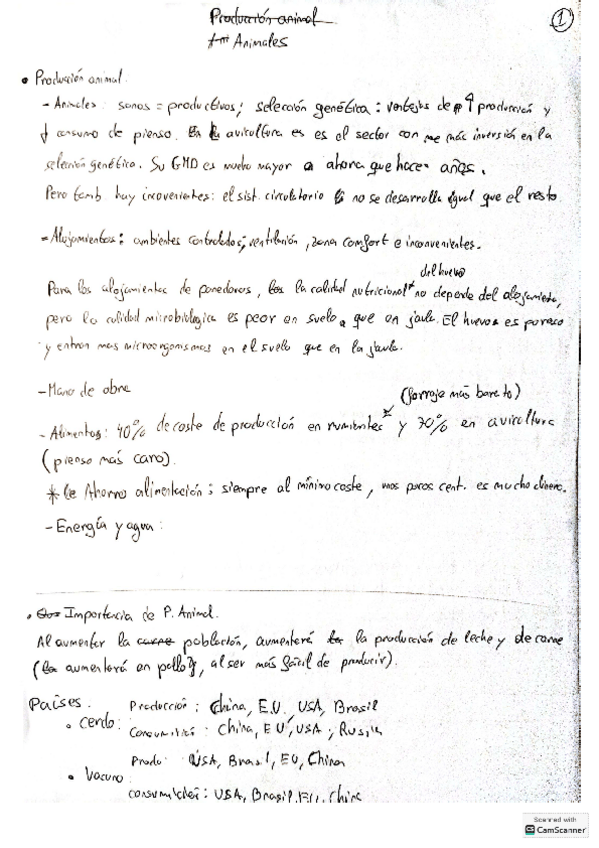 Producción animal
1
Animales
• Producción animal.
- Animales: sanos = productivos; selección genética: ventajas de ↑ producción y
↓ consumo de pienso. En la avicultura es es el sector con más inversión en la
selección genética. Su GMD es mucho mayor a ahora que hace años.
Pero tamb. hay incovenientes: el sist. circulatorio no se desarrolla igual que el resto.
- Alojamientos: ambientes controlados, ventilación, zona comfort e inconvenientes.
del huevo
Para los alojamientos de ponedoras, la calidad nutricional no depende del alojamiento,
pero la calidad microbiologica es peor en suelo que en jaula. El huevo es poroso
y entran mas microorganismos en el suelo que en la jaula.
- Mano de obra
(forraje más barato)
- Alimentos: 40% de coste de producción en rumiantes y 70% en avicultura
(pienso más caro).
* Ahorro alimentación: siempre al mínimo coste, unos pocos cent. es mucho dinero.
- Energía y agua:
• Importancia de P. Animal.
Al aumentar la población, aumentará la producción de leche y de carne
(aumentará en pollo, al ser más fácil de producir).
Países.
Producción: China, E.U, USA, Brasil
• Cerdo:
Consumición: China, EU, USA, Rusia
Prod: USA, Brasil, EU, China
• Vacuno:
consumición: USA, Brasil, EU, China
Scanned with
CamScanner